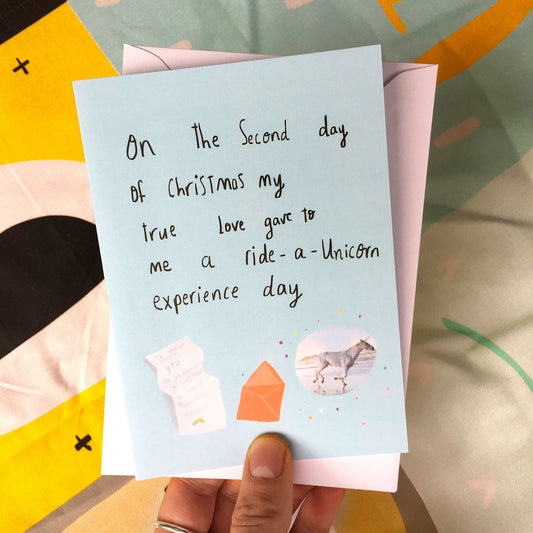 On the Second day
of Christmas my
true love gave to
me a ride-a-Unicorn
experience day
you